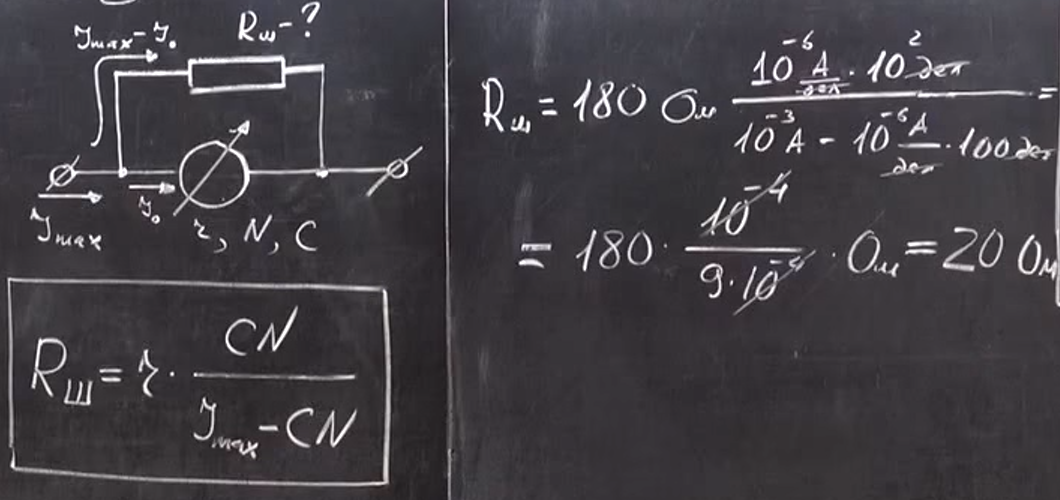 I_max - I_0
R_ш - ?
I_max
I_0
r, N, C
R_ш = r · CN / (I_max - CN)
R_ш = 180 Ом (10^-6 А/дел · 10^2 дел) / (10^-3 А - 10^-6 А/дел · 100 дел) =
= 180 · 10^-4 / (9 · 10^-4) · Ом = 20 Ом